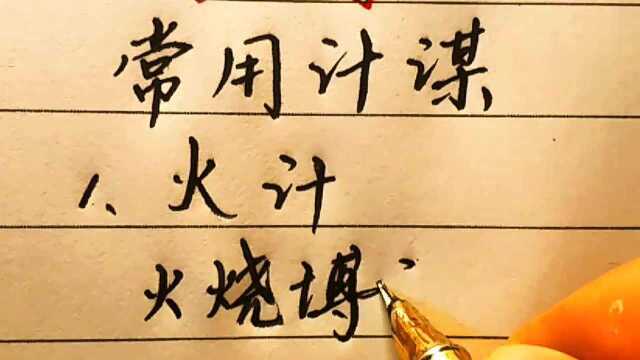 常用计谋
1、火计
火烧博